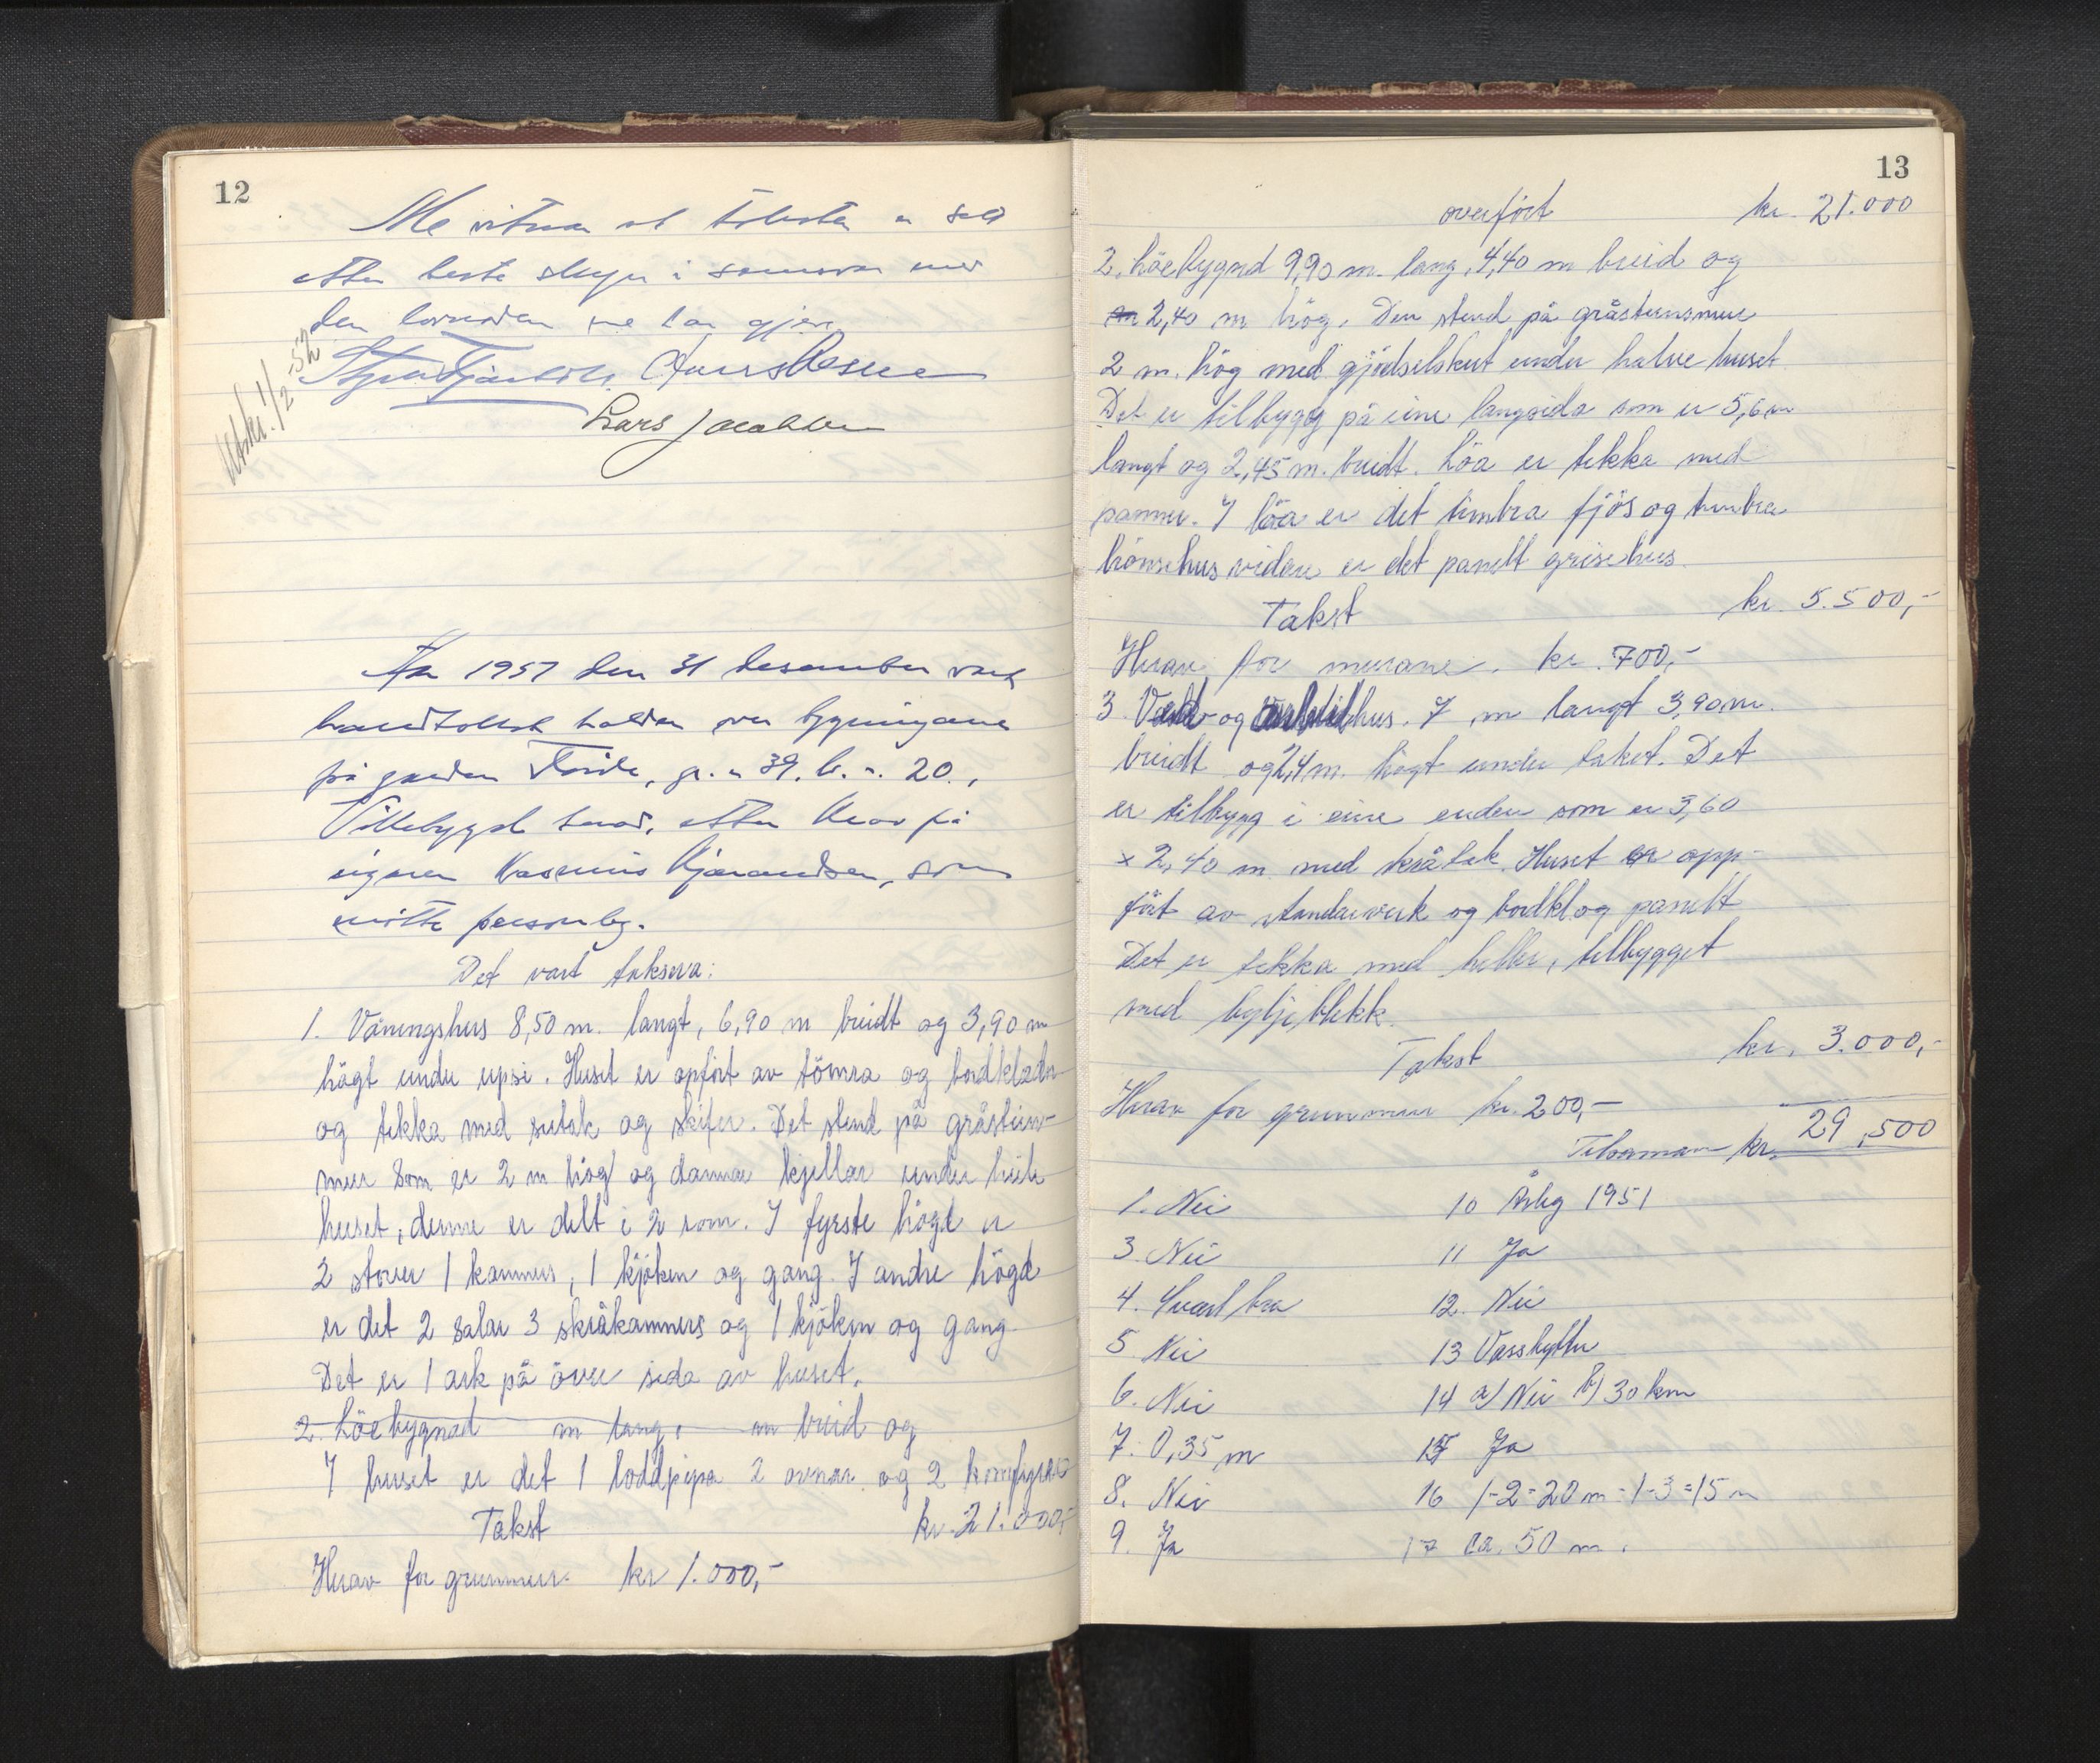 12
Me vitnar at taksten er sett
etter beste skyn i samsvar med
den lovnaden me har gjeve
Lars Jacobsen
Utskr. 1/2-52
År 1951 den 31 desember vart
branntakst halden over bygningane
på garden Förde, g.n. 39. b.n. 20.,
Vikebygd herad, etter krav frå
eigaren Rasmus Kjærandsen, som
møtte personleg.
Det vart taksera:
1. Våningshus 8,50 m. langt, 6,90 m breidt og 3,90 m
högt under upsi. Huset er opfört av tömra og bordkladn
og tekka med sutak og skifer. Det stend på gråstein-
mur som er 2 m högt og dannar kjellar under heile
huset, denne er delt i 2 rom. I fyrste högd er
2 stover 1 kammers, 1 kjöken og gang. I andre högd
er det 2 salar 3 skråkammers og 1 kjöken og gang.
Det er 1 ark på övre sida av huset.
2. Löebygnad m lang, m breid og
I huset er det 1 loddpipa 2 ovnar og 2 komfyrar
Takst kr. 21.000,-
Herav for grunnmur. kr 1.000,-
13
overfört kr. 21.000
2. Löebygnd 9,90 m. lang, 4,40 m breid og
2,40 m hög. Den stend på gråsteinsmur
2 m. hög med gjödselskut under halve huset
Det er tilbygg på eine langsida som er 5,6 m
langt og 2,45 m. breidt. Löa er tekka med
pannur. I löa er det timbra fjös og timbra
hönsehus vidare er det panelt grisehus.
Takst kr. 5.500,-
Herav for murane. kr. 700,-
3 Ved- og hus. 7 m langt 3,90 m.
breidt og 2,4 m. högt under taket. Det
er tilbygg i eine enden som er 3,60
x 2,40 m med skråtak. Huset er opp-
fört av standarverk og bordkl. og panelt
Det er tekka med heller, tilbygget
med bylgjeblekk.
Takst kr. 3.000,-
Herav for grunnmur kr. 200,-
Tilsaman kr. 29,500
1. Nei 10 Årleg 1951
3. Nei 11 Ja
4. Svært bra 12. Nei
5 Nei 13 Vassbytter
6. Nei 14 a/ Nei b/ 30 km
7. 0,35 m 15 Ja
8. Nei 16 1-2=20 m - 1-3=15 m
9. Ja 17 ca. 50 m.